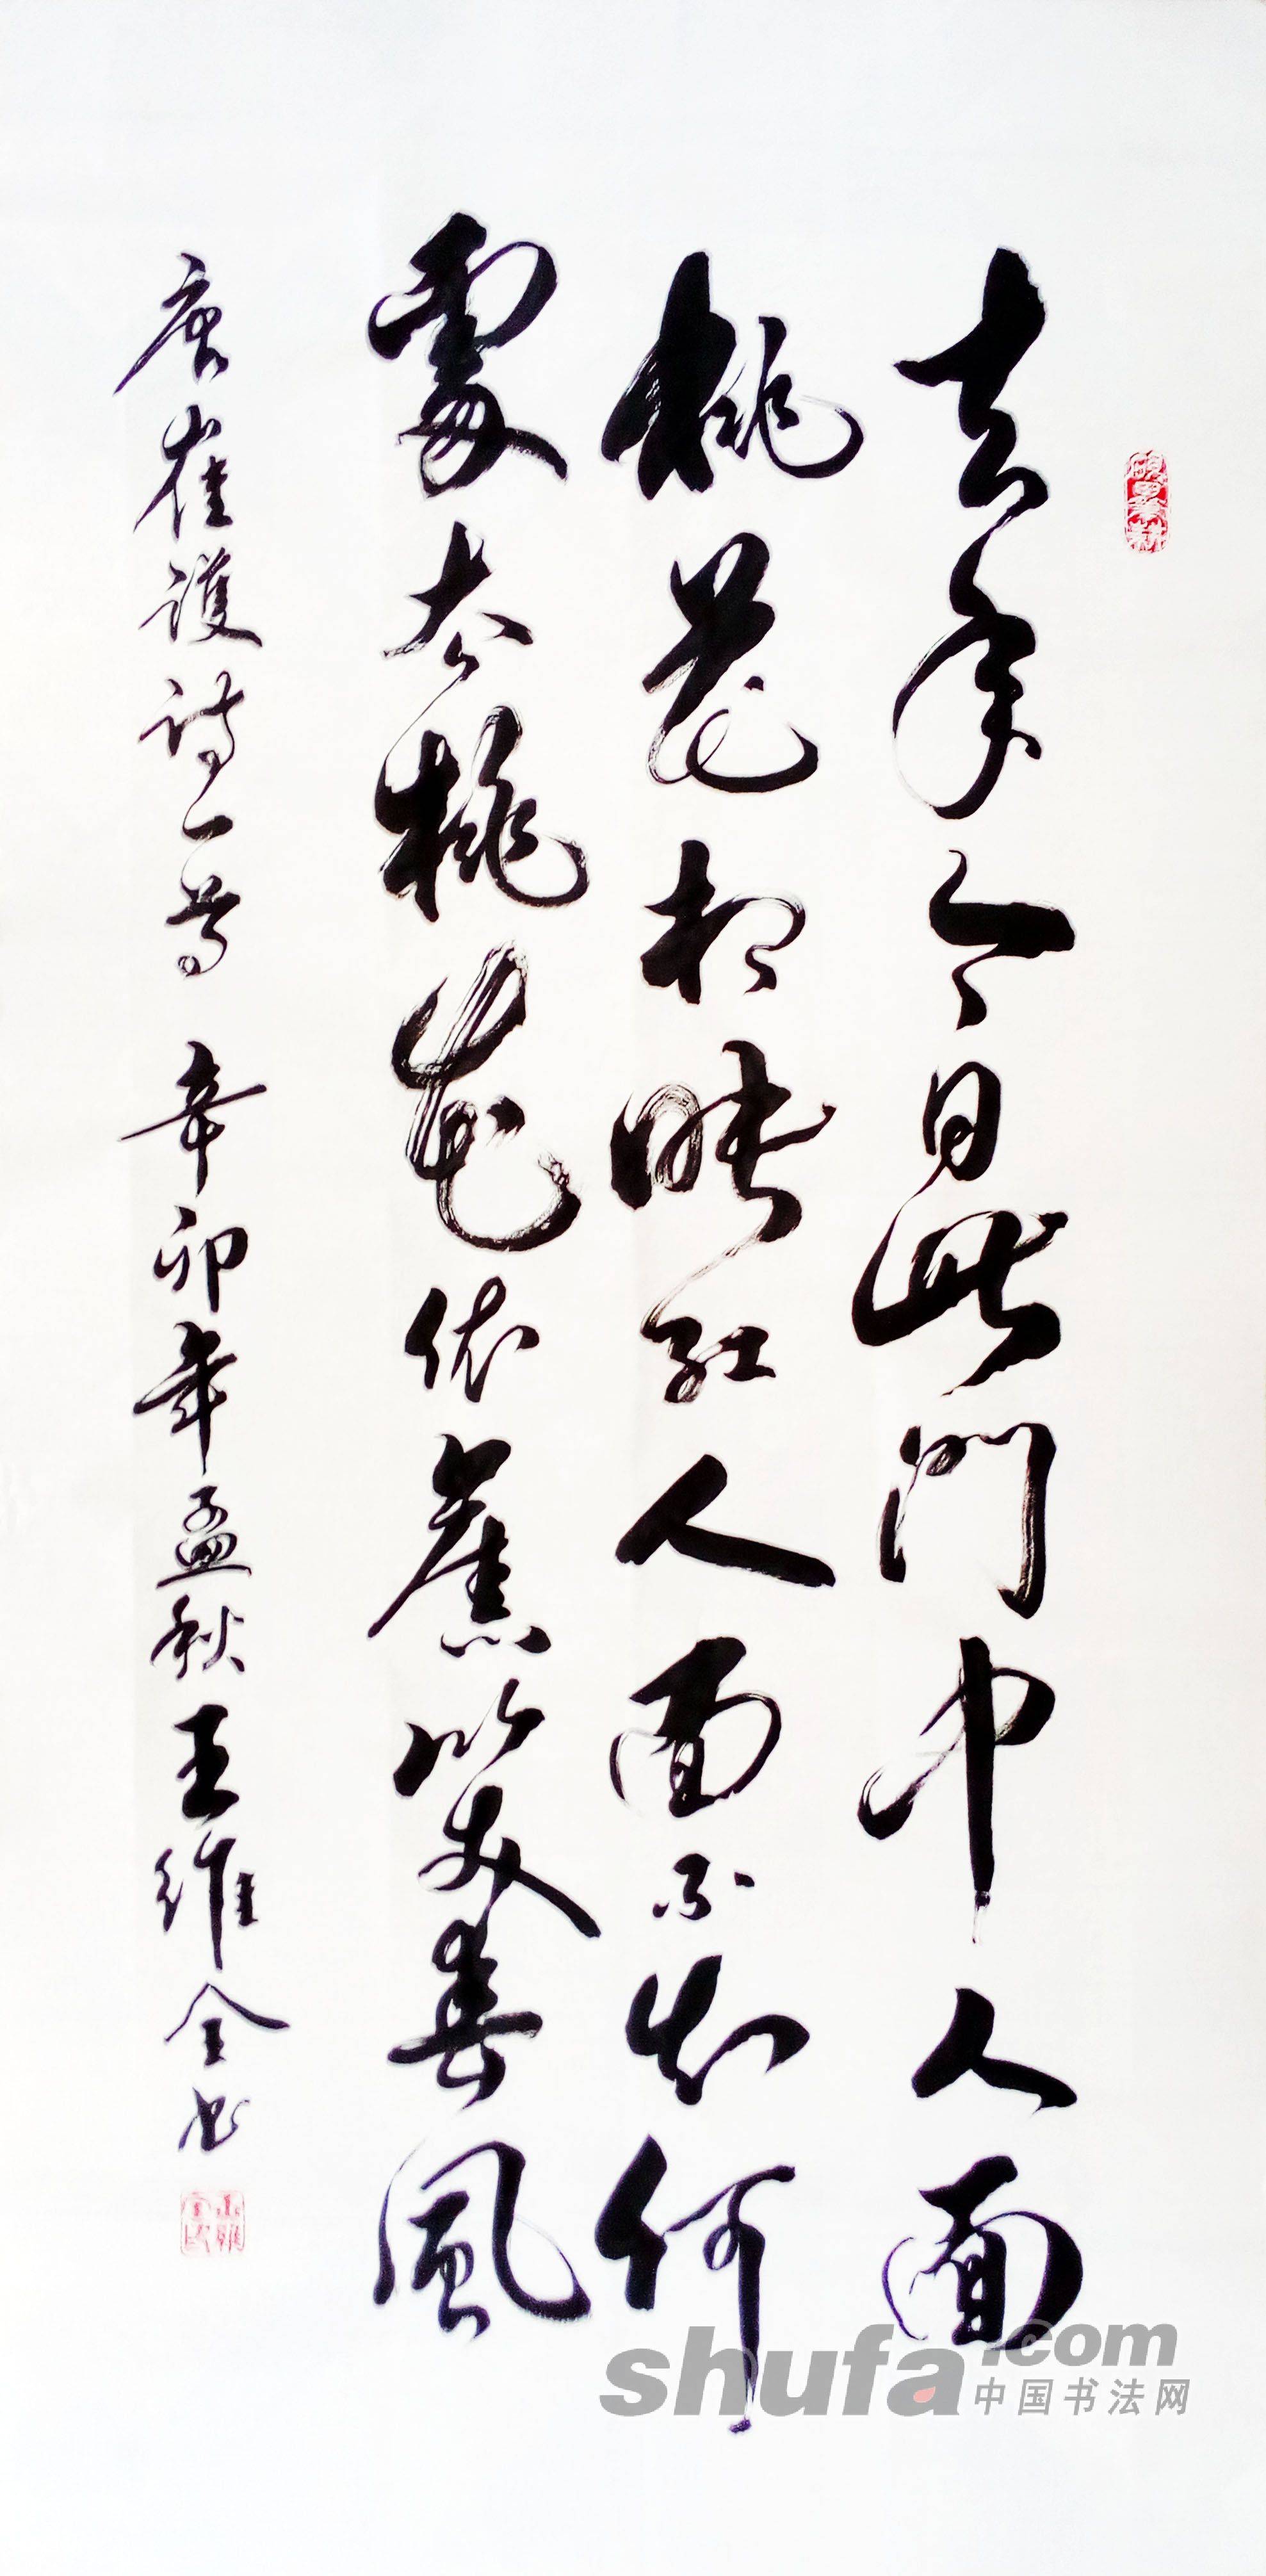 去年今日此門中人面
桃花相映紅人面不知何
處去桃花依舊笑春風
唐崔護詩一首 辛卯年孟秋王維全书
shufa.com
中国书法网